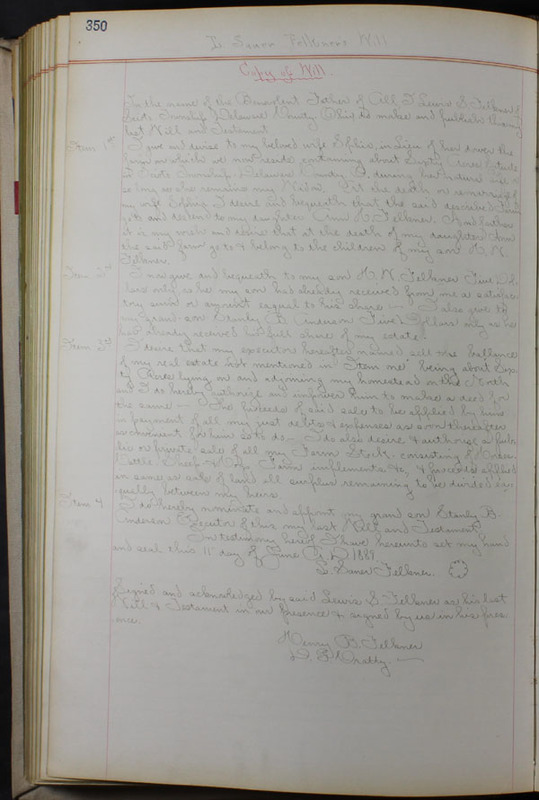 350
L Sauer Felkner's Will
Copy of Will
In the name of the Benevolent Father of All I Lewis S. Felkner of
Scioto Township Delaware County Ohio do make and publish this my
last Will and Testament
Item 1st I give and devise to my beloved wife Sophia, in lieu of her dower the
farm on which we now reside containing about Acres situate
in Scioto Township Delaware County O, during her natural life or
so long as she remains my Widow. At the death or remarriage of
my wife Sophia I desire and bequeath that the said described Farm
go to and descend to my daughter Ann Felkner. And further
it is my wish and desire that at the death of my daughter Ann
the said farm go to & belong to the children of my son H. N.
Felkner.
Item 2d I now give and bequeath to my son H. N. Felkner Five Dol-
lars only as he my son has already received from me a satisfac-
tory sum or amount equal to his share — I also give to
my grand-son Stanley B. Anderson Five Dollars only as he
has already received his full share of my estate.
Item 3d I desire that my executor hereafter named sell the ballance
of my real estate not mentioned in "Item one" being about
Acres lying on and adjoining my homestead on the North
and I do hereby authorize and impower him to make a deed for
the same — The proceeds of said sale to be applied by him
in payment of all my just debts & expenses as soon thereafter
as convenient for him so to do — I do also desire & authorize a pub-
lic or private sale of all my Farm Stock, consisting of Horses
Cattle Sheep & Hogs Farm implements &c, & proceeds applied
in same as sale of land all surplus remaining to be divided e-
qually between my heirs.
Item 4 I do hereby nominate and appoint my grand son Stanley B.
Anderson Executor of this my last Will and Testament
In testimony hereof I have hereunto set my hand
and seal this 11 day of June A.D. 1889
L. Sauer Felkner.
Signed and acknowledged by said Lewis S. Felkner as his last
Will & Testament in our presence & signed by us in his pres-
ence.
Henry B. Felkner